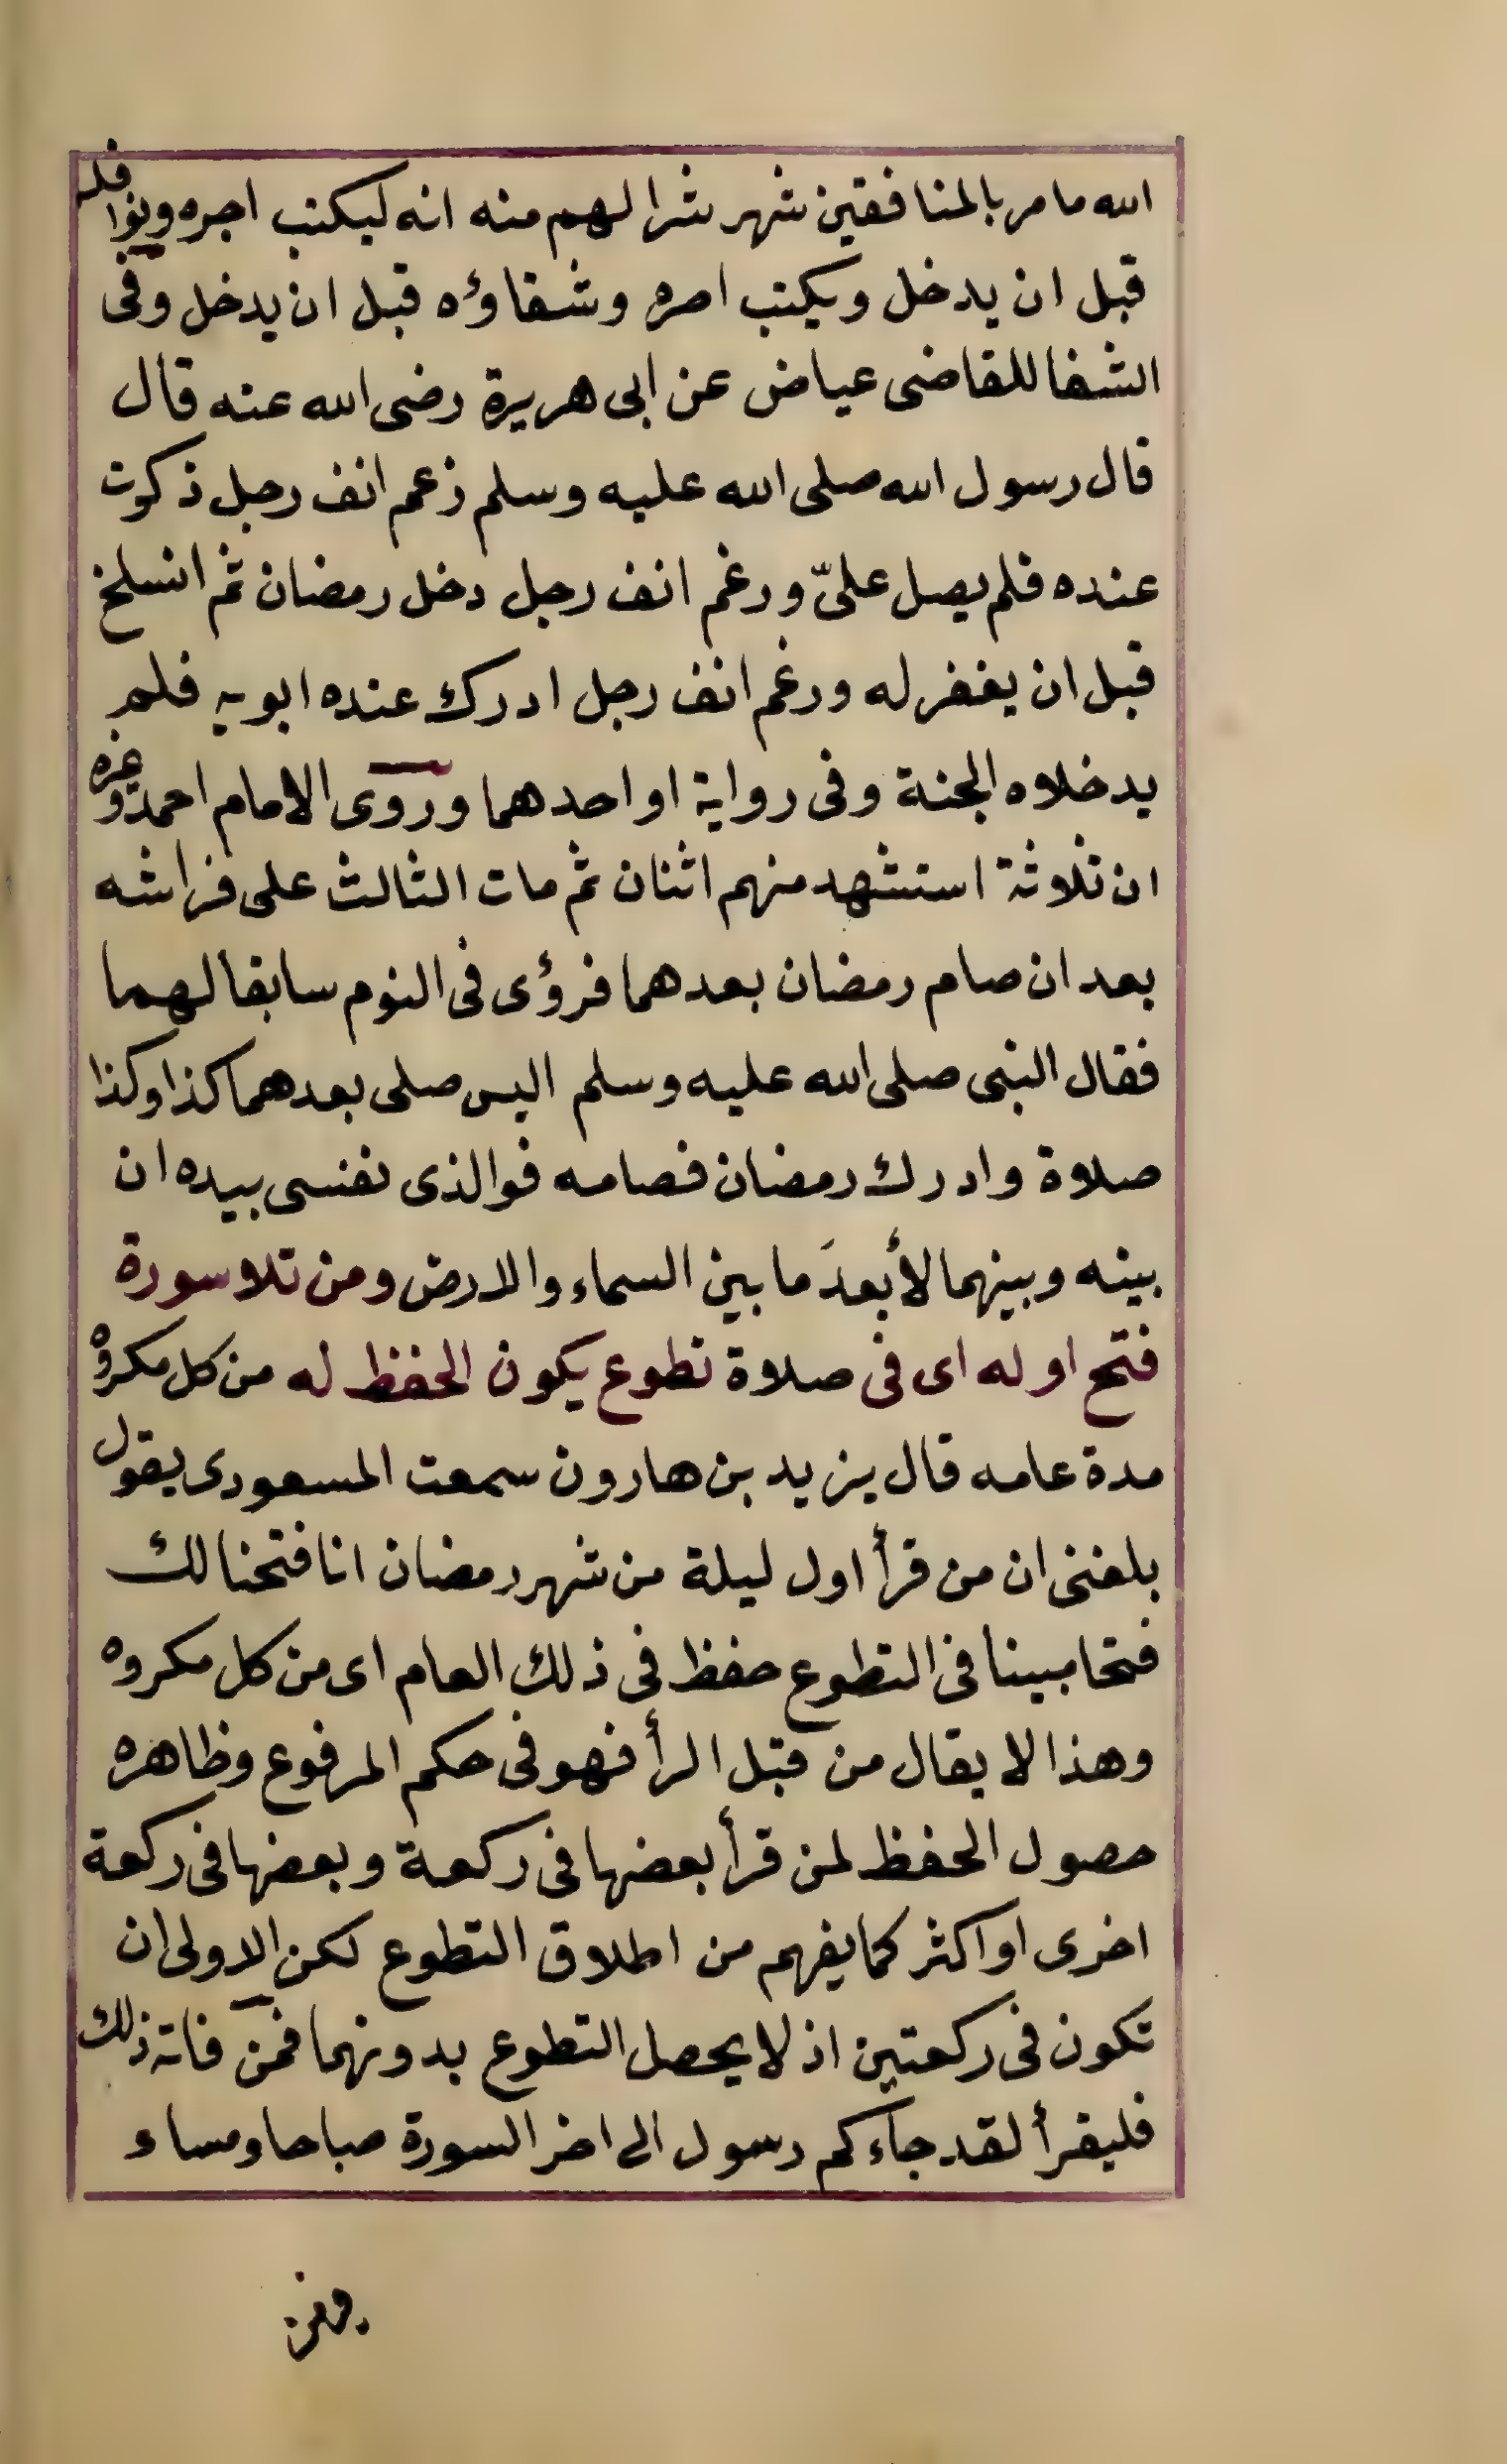 الله ما مر بالمنافقين شهر شرا لهم منه انه ليكتب اجره ونوافله
قبل ان يدخل ويكتب اصره وشقاؤه قبل ان يدخل وفى
الشفا للقاضى عياض عن ابى هريرة رضى الله عنه قال
قال رسول الله صلى الله عليه وسلم زعم انف رجل ذكرت
عنده فلم يصل علىّ ورغم انف رجل دخل رمضان ثم انسلخ
قبل ان يغفر له ورغم انف رجل ادرك عنده ابويه فلم
يدخلاه الجنة وفى رواية او احدهما وروى الامام احمد وغيره
ان ثلاثة استشهد منهم اثنان ثم مات الثالث على فراشه
بعد ان صام رمضان بعدهما فرؤى فى النوم سابقا لهما
فقال النبى صلى الله عليه وسلم اليس صلى بعدهما كذا وكذا
صلاة وادرك رمضان فصامه فوالذى نفسى بيده ان
بينه وبينهما لأبعدَ ما بين السماء والارض ومن تلا سورة
فتح اوله اى فى صلاة تطوع يكون الحفظ له من كل مكروه
مدة عامه قال يزيد بن هارون سمعت المسعودى يقول
بلغنى ان من قرأ اول ليلة من شهر رمضان انا فتحنا لك
فتحا مبينا فى التطوع حفظ فى ذلك العام اى من كل مكروه
وهذا لا يقال من قبل الرأ فهو فى حكم المرفوع وظاهره
حصول الحفظ لمن قرأ بعضها فى ركعة وبعضها فى ركعة
اخرى او اكثر كما يفهم من اطلاق التطوع لكن الاولى ان
تكون فى ركعتين اذ لا يحصل التطوع بدونهما فمن فاته ذلك
فليقرأ لقد جآءكم رسول الى اخر السورة صباحا ومساء